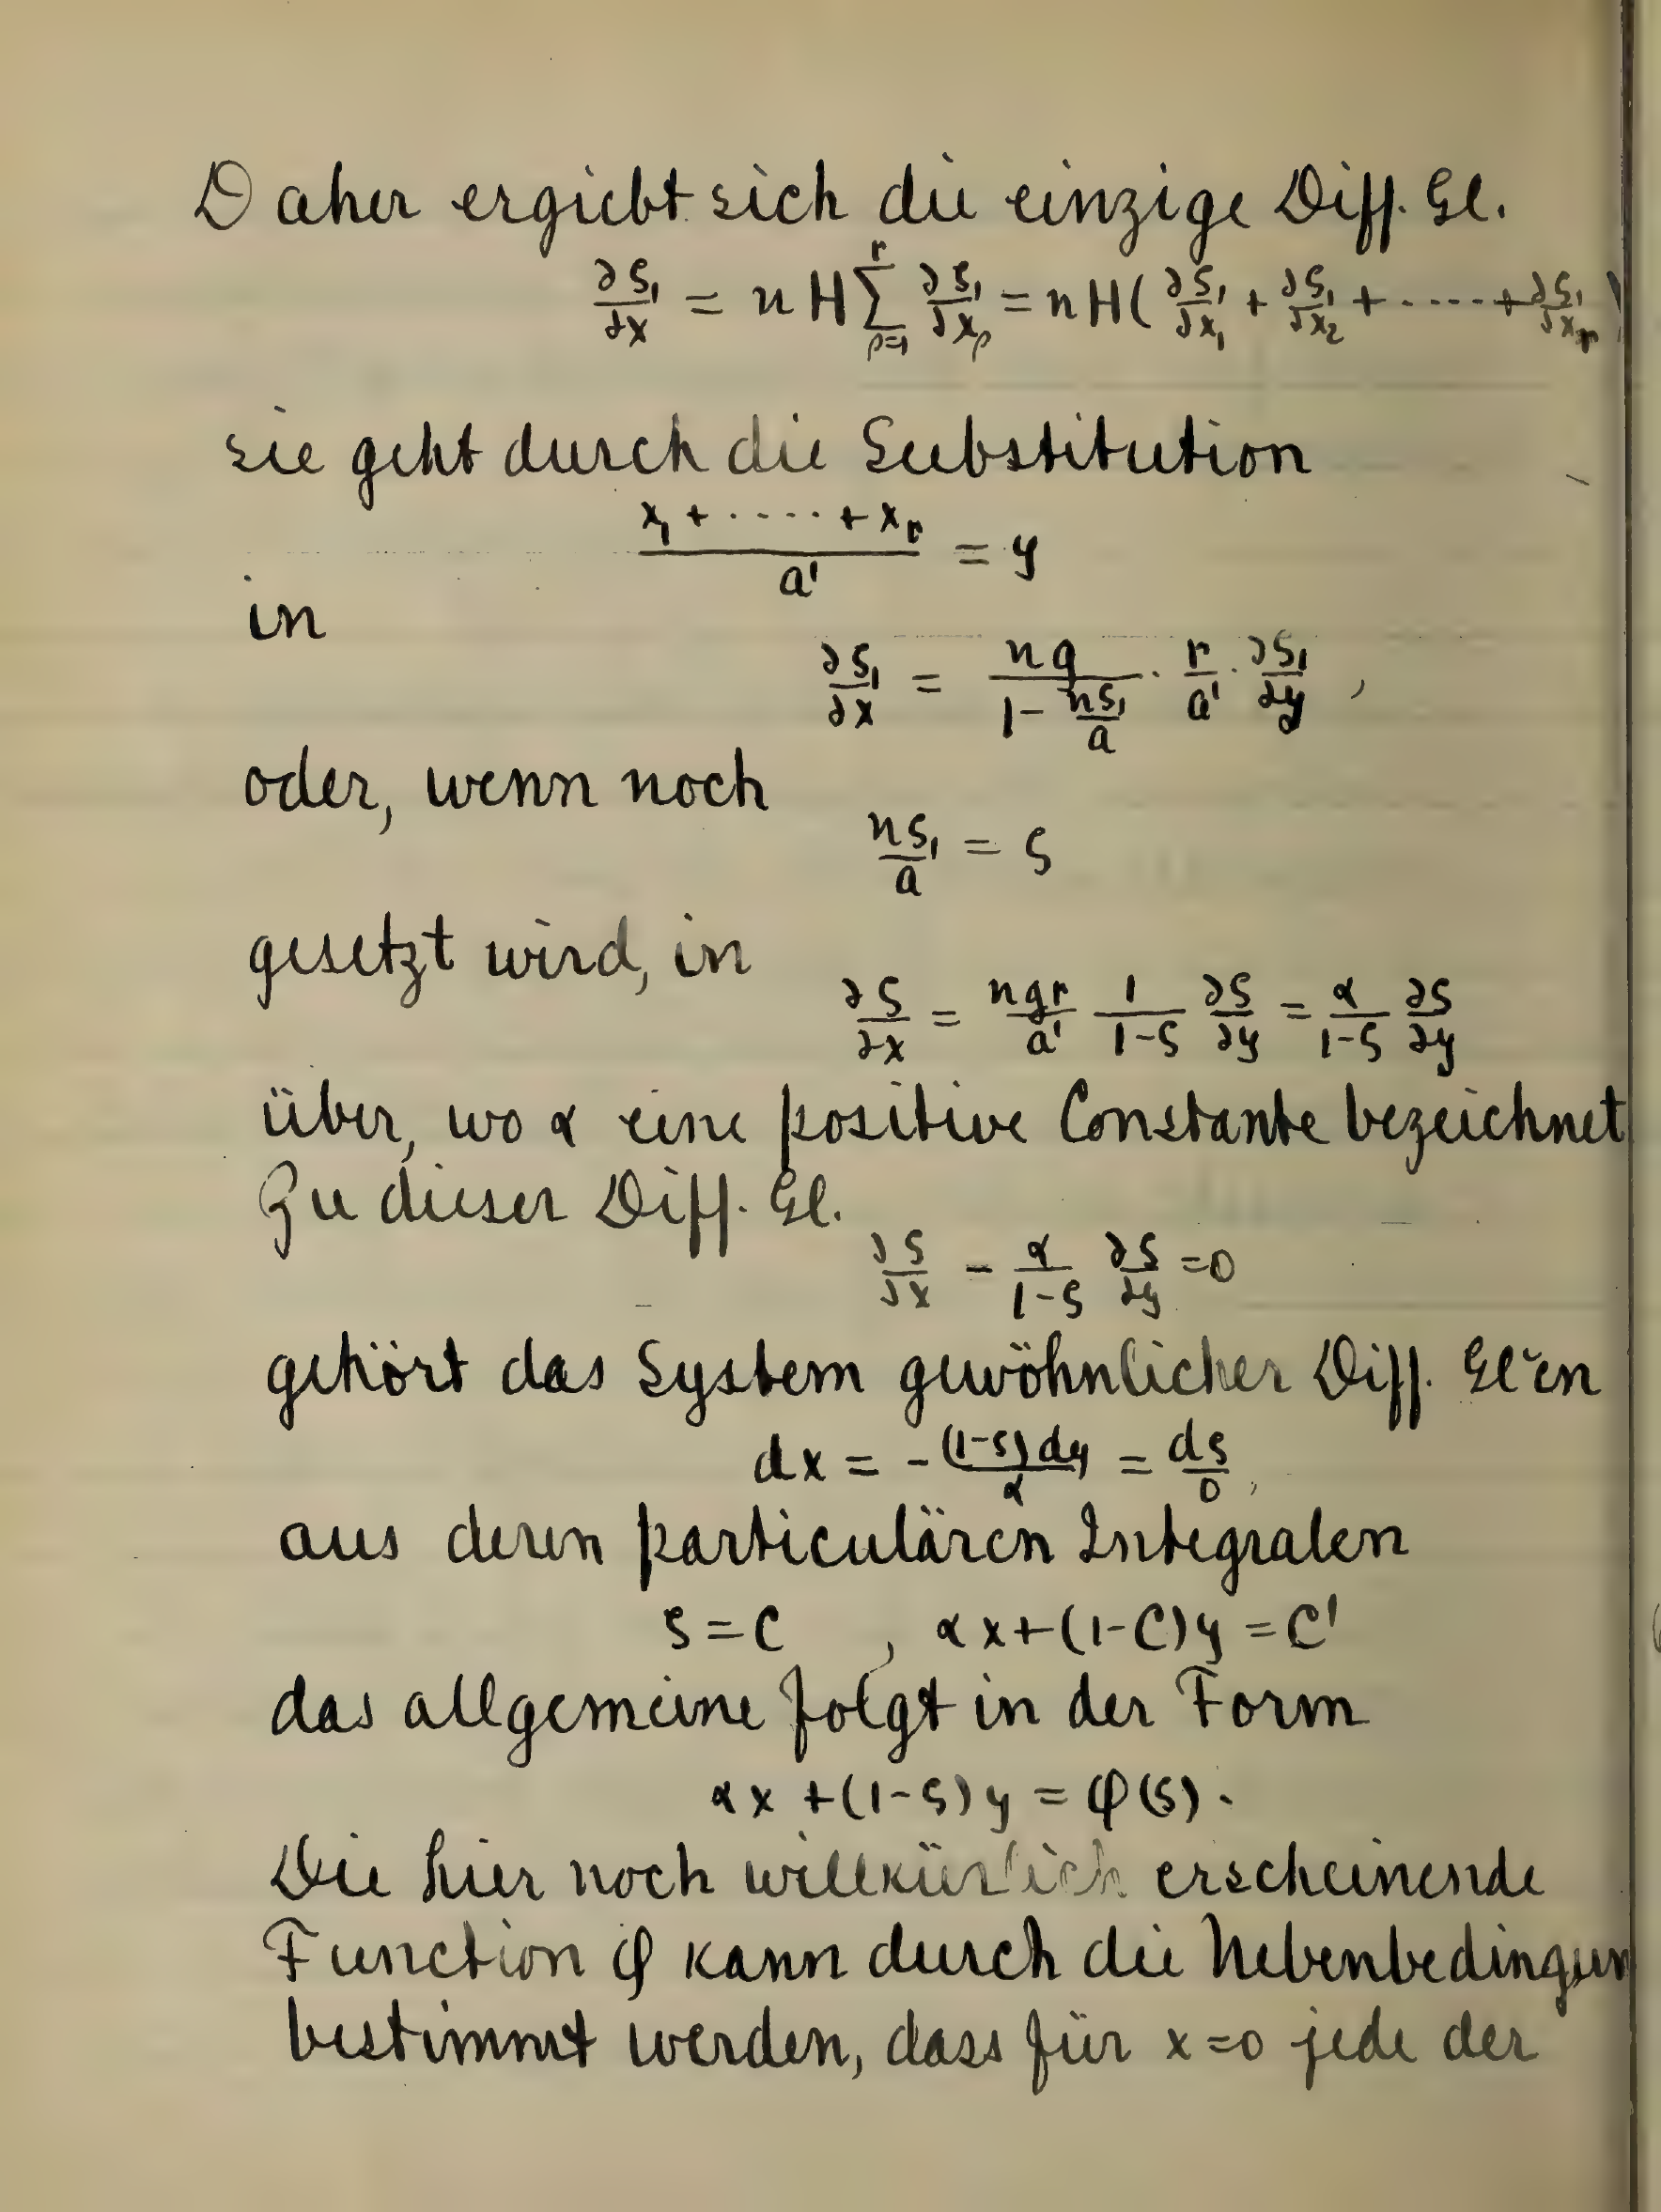 Daher ergiebt sich die einzige Diff. Gl.
∂ς₁/∂x = n H ∑_{ρ=1}^{r} ∂ς₁/∂x_ρ = n H ( ∂ς₁/∂x₁ + ∂ς₁/∂x₂ + ····· + ∂ς₁/∂x_r )
sie geht durch die Substitution
(x₁ + ····· + x_r)/a' = y
in
∂ς₁/∂x = nq/(1 - nς₁/a) · r/a' · ∂ς₁/∂y ,
oder, wenn noch
nς₁/a = ς
gesetzt wird, in
∂ς/∂x = nqr/a' 1/(1-ς) ∂ς/∂y = α/(1-ς) ∂ς/∂y
über, wo α eine positive Constante bezeichnet
Zu dieser Diff. Gl.
∂ς/∂x - α/(1-ς) ∂ς/∂y = 0
gehört das System gewöhnlicher Diff. Gl'en
dx = - (1-ς)dy/α = dς/0 ,
aus deren particulären Integralen
ς = C , αx + (1-C)y = C'
das allgemeine folgt in der Form
αx + (1-ς)y = φ(ς).
Die hier noch willkürlich erscheinende
Function φ kann durch die Nebenbedingun
bestimmt werden, dass für x=0 jede der